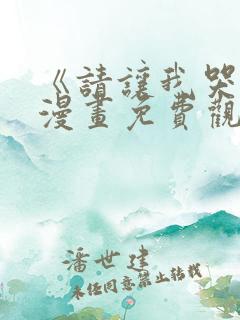 《請讓我哭
漫畫免費觀
潘世建
未任同意禁止轉載